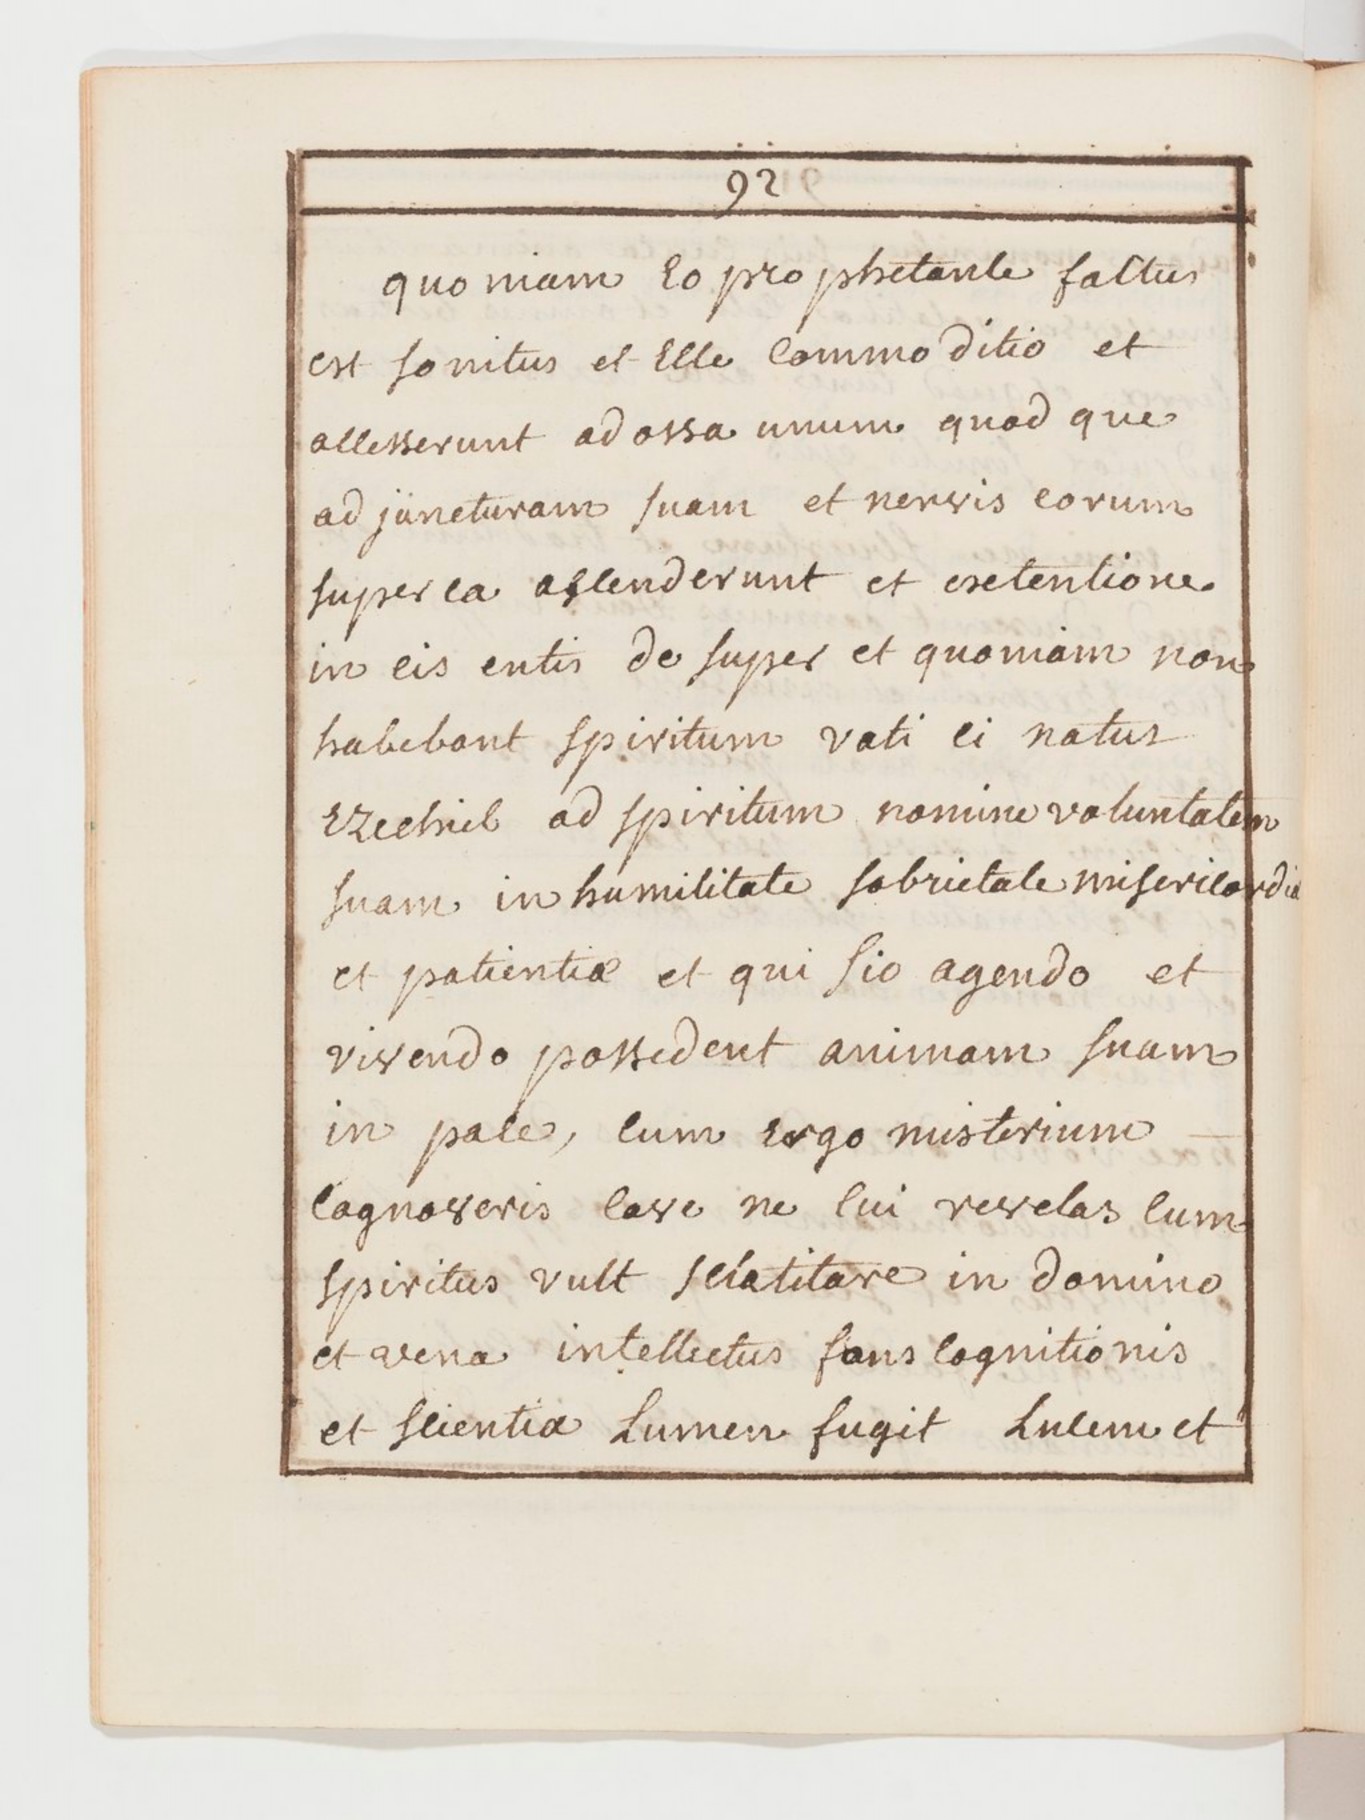 92
quoniam Eo prophetante factus
est sonitus et Ecce Commoditio et
accesserunt ad ossa unum quod que
ad juncturam suam et nervis eorum
super ea ascenderunt et exetentione
in eis entis de super et quoniam non
habebant spiritum vati ci natus
Ezechiel ad spiritum nomine voluntatem
suam in humilitate sobrietate misericordia
et patientiæ et qui sic agendo et
vivendo possedent animam suam
in pace, cum Ergo misterium
Cognoveris Cave ne Cui revelas Cum
spiritus vult sclatitare in domino
et avena intellectus fons cognitionis
et scientia Lumen fugit Lucem et